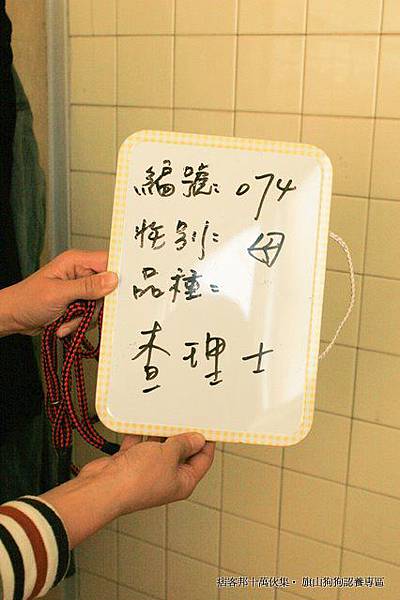 編號: 074
性別: 母
品種:
查理士
痞客邦十萬伙集。旗山狗狗認養專區